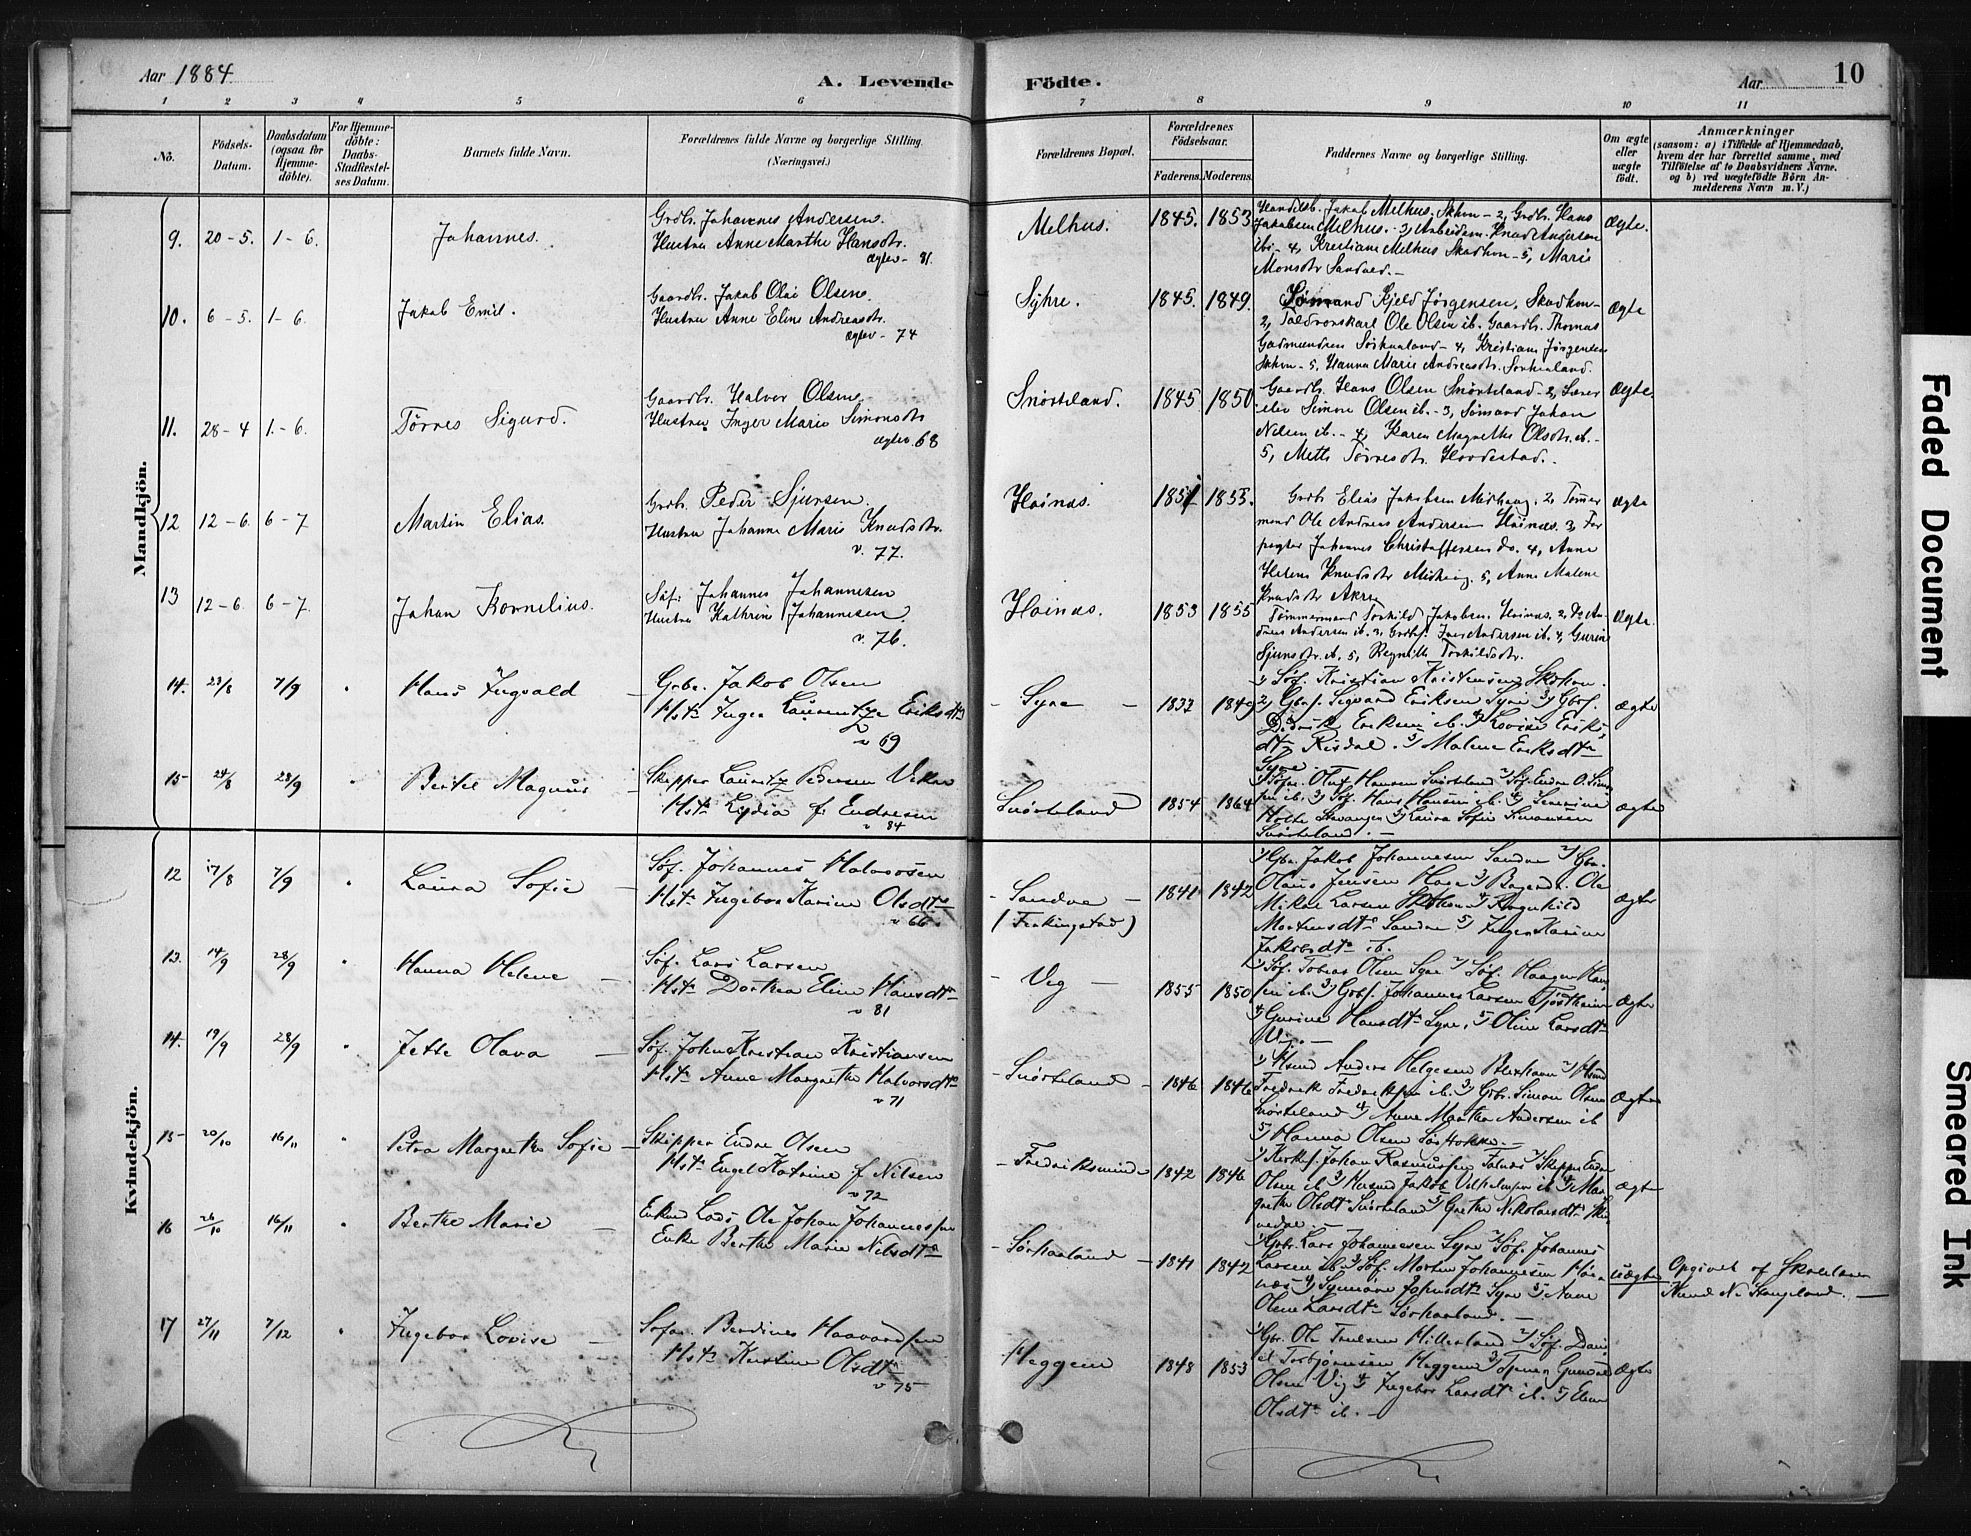 Aar 1884
A. Levende Födte.
Aar
10
1 2 3 4 5 6 7 8 9 10 11
No.
Födsels-Datum.
Daabsdatum (ogsaa for Hjemme-döbte).
For Hjemme-döbte: Daabs-Stadfestel-ses Datum.
Barnets fulde Navn.
Forældrenes fulde Navne og borgerlige Stilling. (Næringsvei.)
Forældrenes Bopæl.
Forældrenes Födselsaar.
Faderens. Moderens.
Faddernes Navne og borgerlige Stilling.
Om ægte eller uægte födt.
Anmærkninger
(saasom: a) i Tilfælde af Hjemmedaab, hvem der har forrettet samme, med Tilföielse af to Daabsvidners Navne. og b) ved uægtefödte Börn An-melderens Navn m. V.)
Mandkjön.
9. 20-5. 1-6. Johannes.
Grdbr. Johannes Andersen.
Hustru Anne Marthe Hansdtr.
ægtev- 81.
Melhus. 1845. 1853
Jakob Melhus, Skhvn - 2, Grdbr. Hans
Jakobsen Melhus. - 3, Arbeidsm. Knud Andersen
ibi - 4, Kristiane Melhus Skudhvn - 5, Marie
Monsdtr Sandved. -
Ægte.
10. 6-5. 1-6. Jakob Emil.
Gaardbr. Jakob Olai Olsen.
Hustru Anne Eline Andreasdtr.
ægtev - 74
Syhre. 1845. 1849.
Sømand Kjeld Jørgensen, Skudhvn -
2, Ole Olsen ib. Gaardbr. Thomas
Gudmundsen Sørhaaland - 4, Kristiane Jørgensen
Skhvn - 5, Hanna Marie Andreasdtr. Sørhaaland.
Ægte
11. 28-4 1.-6. Tørres Sigurd.
Gaardbr. Halvor Olsen.
Hustru Inger Marie Simonsdtr
ægtev. 68
Snørteland. 1845 1850
Gaardbr. Hans Olsen Snørteland - 2, Lærer
elev Simon Olsen ib. - 3, Sømand Johan
Nilsen ib. - 4, Karen Magrethe Olsdtr. ib. -
5, Mette Tørresdtr.
Ægte.
12 12-6. 6-7 Martin Elias.
Grdb. Peder Sjursen.
Hustru Johanne Marie Knudsdtr.
v. 77.
Høinæs. 1851 1855.
Grdb Elias Jakobsen Mishaug, 2, Tømer
mand Ole Andreas Andersen Høinæs. 3, For
pagter Johannes Christoffersen do. 4, Anne
Helene Knudsdtr Mishaug. 5, Anne Malene
Knudsdtr Akre.
Ægte
13 12-6. 6-7. Johan Kornelius.
Søf: Johannes Johannesen
Hustru Kathrine Johannesen.
v. 76.
Høinæs. 1853 1855
Tømmermand Torkild Jakobsen Høinæs. 2, Do An-
dreas Andersen ib. 3, Grdbs. Andersen ib. 4, Gurine
Sjursdtr. ib. 5, Torkildsdtr.
Ægte.
14. 23/8 7/9 " Hans Ingvald -
Grbr. Jakob Olsen
Hst. Inger Lauritze Eriksdt
v 69
- Syre - 1837 1849
1) Søf. Kristian Kristensen Skhvn.
2) Gbrs. Sigvard Eriksen Syre 3) Gbrs.
Didrik Eriksen ib. 4) Lovise Eriks-
dt Risdal. 5) Malene Eriksdt
Syre.
Ægte
15 24/8 28/9 " Bertel Magnus -
Skipper Lauritz Pedersen
Hst. Lydia f. Endresen
v 84
Snørteland 1854 1864
1) Olaf Hansen Snørteland 2) Søf. Endre O. Simon
sen ib. 3) Søf. Hans Hansen ib. 4) Severine
Holte Stavanger 5) Laura Sofie Simonsen
Snørteland. -
Ægte
Kvindekjön.
12 17/8 7/9 " Laura Sofie -
Søf. Johannes Halvorsen
Hst. Ingebor Karine Olsdt
v 66
- Sandve -
(Ferkingstad) 1841 1842
1) Gbr. Jakob Johannesen Sandve 2) Gbr.
Olaus Jensen 3) Ole
Mikal Larsen Skhvn 4) Ragnhild
Mortensdt. Sandve 5) Inger Karine
Jakobsdt. ib.
Ægte
13. 14/9 28/9 " Hanna Helene -
Søf. Lars Larsen
Hst. Dorthea Eline Hansdt
v 81
- Veg - 1855 1850
1) Søf. Tobias Olsen Syre 2) Søf. Haagen Han
sen ib. 3) Grbs. Johannes Larsen
4) Gurine Hansdt Syre. 5) Oline Larsdt
Vig. -
Ægte
14. 19/9 28/9 " Jette Olava -
Søf. John Kristian Kristiansen
Hst. Anne Margrethe Halvorsdt
v 71
- Snørteland - 1846 1846
1) Anders Helgesen
Fredrik Fredriksen ib. 3) Gbr. Simon Olsen
Snørteland 4) Anne Martha Andersen ib
5) Hanna Olsen
Ægte
15 20/10 16/11 " Petra Margrethe Sofie -
Skipper Endre Olsen
Hst. Engel Katrine f Nilsen
v 72
- Fredriksminde 1842 1846
1) Johan Rasmussen Falnæs 2) Skipper Endre
Olsen ib 3) Jakob ib 4) Mar
grethe Olsdt. Snørteland 5) Grethe Nikolaisdt.
Ægte
16 26/10 16/11 " Berthe Marie -
Enkmd Lods Ole Johan Johannessen
Enke Berthe Marie Nilsdt
- Sørhaaland - 1841 1842
1) Gbr. Lars Johannesen Syre 2) Søf. Johannes
Larsen ib 3) Søf. Morten Johannesen Høi
næs 4) Johnsdt Syre 5) Anne
Oline Larsdt Sørhaaland. -
uægte
Opgivet af Skolelærer
Knud N. Stangeland. -
17 27/11 7/12 " Ingebor Lovise -
Søfar. Berdines Haavardsen
Hst. Kirstine Olsdt
v 75
Heggem 1848 1853
1) Gbr. Ole Trulsen Hilleland 2) Søf. Dani
el Torbjørnsen Heggem 3) Gunder
Olsen Vig 4) Ingebor Larsdt. ib. 5) Elen
Olsdt. ib. -
Ægte
Faded Document
Smeared Ink